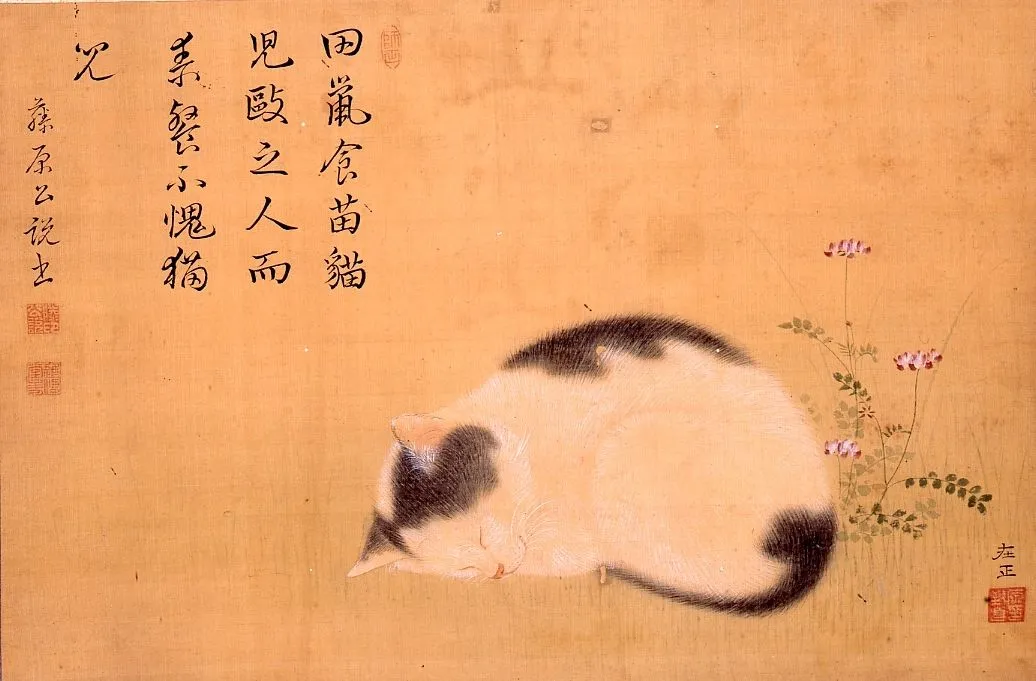 田鼠食苗貓
児毆之人而
素餐不愧猫
兒
藤原公説書
在正